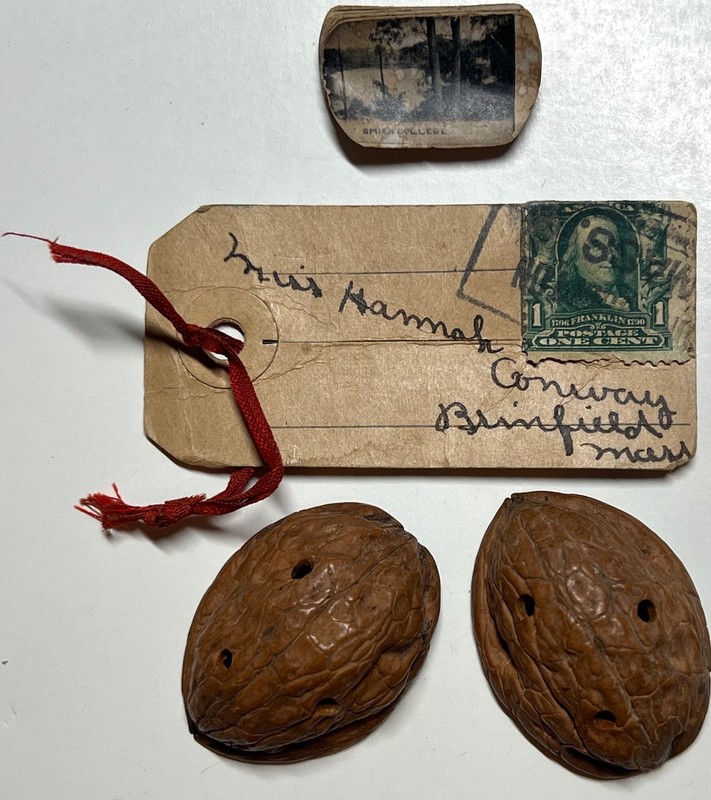 SMITH COLLEGE
Miss Hannah
Conway
Brimfield
Mass
1 1706 FRANKLIN 1790 1
POSTAGE
ONE CENT